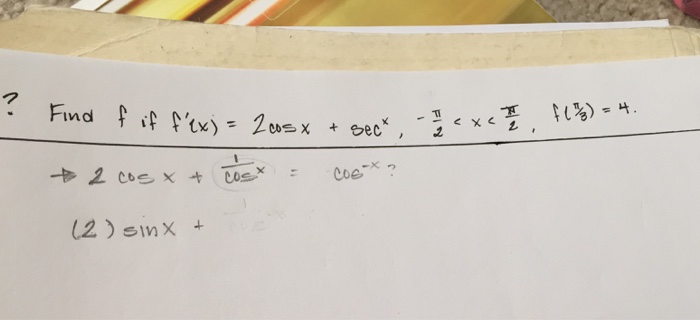 ? Find f if f'(x) = 2cosx + secˣ, -π/2 < x < π/2, f(π/3) = 4.
→ 2 cos x + 1/cosˣ = cos⁻ˣ ?
(2) sinx +